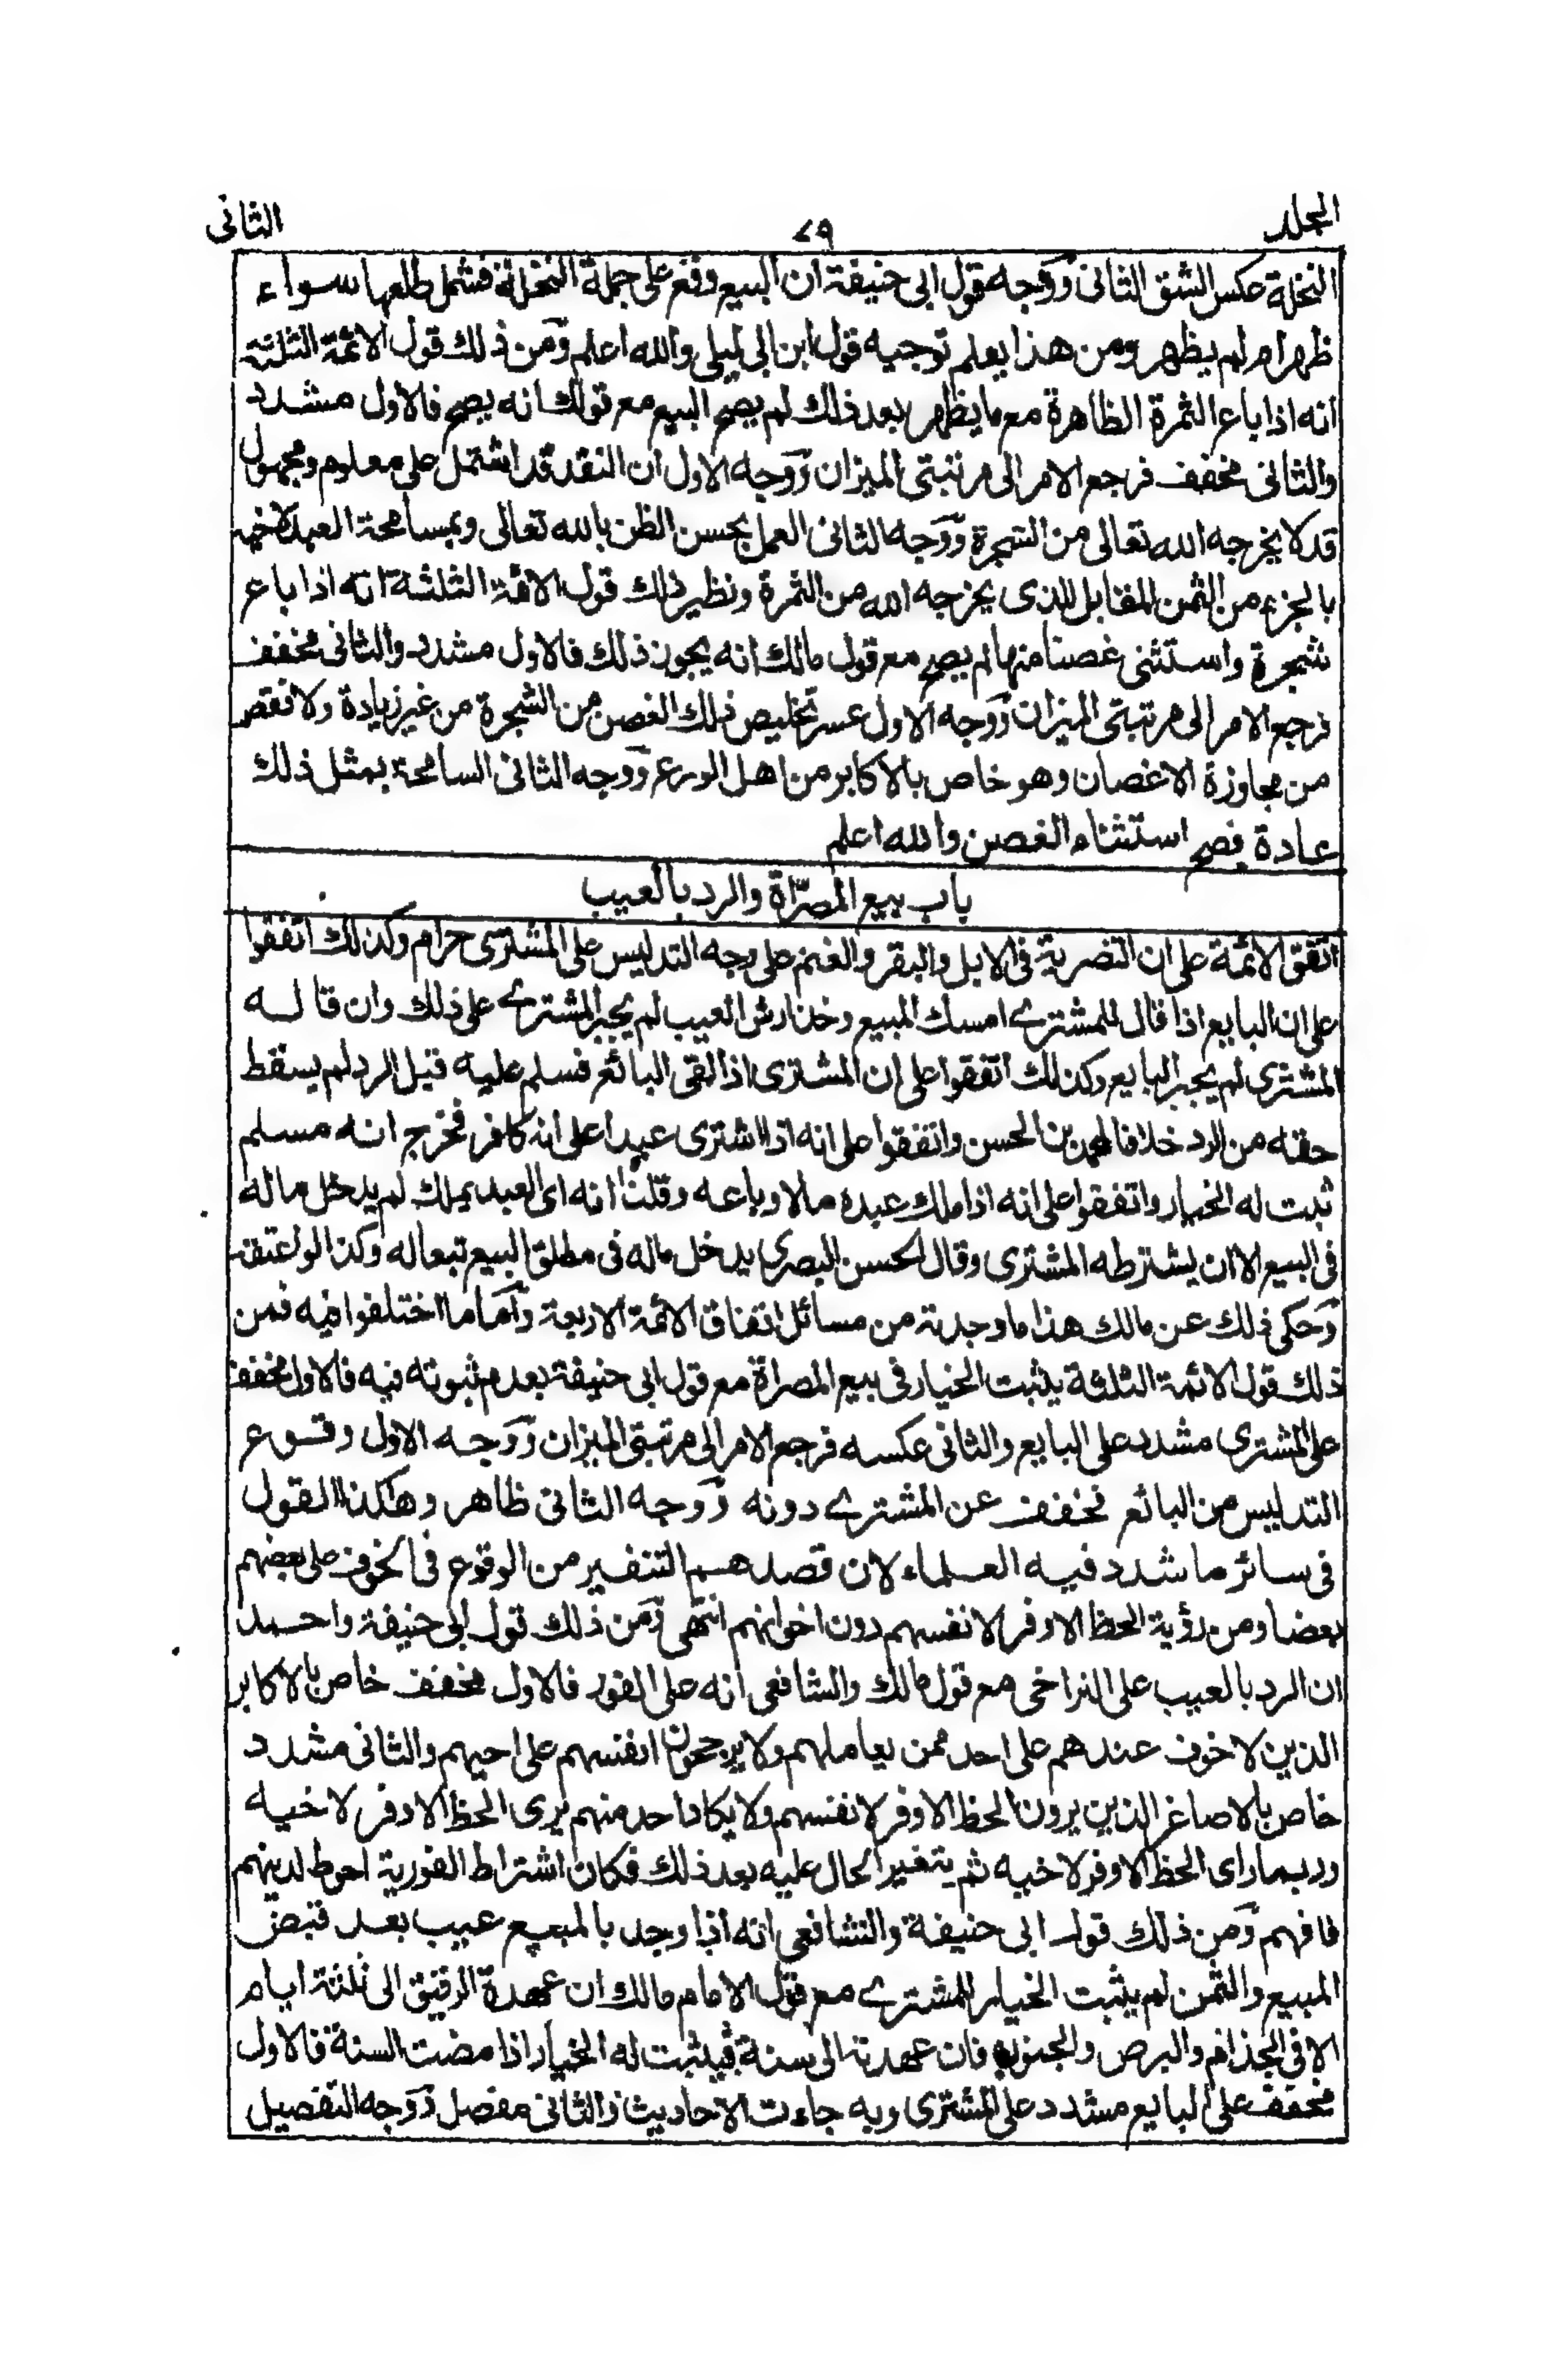 المجلد
٧٩
الثانى
النخلة عكس الشق الثانى ووجه قول ابى حنيفة ان البيع وقع على جملة النخلة فشمل طلعها سواء
ظهر ام لم يظهر ومن هذا يعلم توجيه قول ابن ابى ليلى والله اعلم ومن ذلك قول الائمة الثلثة
انه اذا باع الثمرة الظاهرة مع ما يظهر بعد ذلك لم يصح البيع مع قول مالك انه يصح فالاول مشدد
والثانى مخفف فرجع الامر الى مرتبتى الميزان ووجه الاول ان النقد قد اشتمل على معلوم ومجهول
قد لا يخرجه الله تعالى من الشجرة ووجه الثانى العمل بحسن الظن بالله تعالى وبمسامحة العبد لاخيه
بالجزء من الثمن المقابل للذى يخرجه الله من الثمرة ونظير ذلك قول الائمة الثلثة انه اذا باع
شجرة واستثنى غصنا منها لم يصح مع قول مالك انه يجوز ذلك فالاول مشدد والثانى مخفف
فرجع الامر الى مرتبتى الميزان ووجه الاول عسر تخليص ذلك الغصن من الشجرة من غير زيادة ولا نقص
من مجاوزة الاغصان وهو خاص بالاكابر من اهل الورع ووجه الثانى السامحة بمثل ذلك
عادة فصح استثناء الغصن والله اعلم
باب بيع المصرّاة والرد بالعيب
اتفق الائمة على ان التصرية فى الابل والبقر والغنم على وجه التدليس على المشترى حرام وكذلك اتفقوا
على ان البايع اذا قال للمشترے امسك المبيع وخذ ارش العيب لم يجبر المشترے على ذلك وان قاله
المشترى لم يجبر البايع وكذلك اتفقوا على ان المشترى اذا لقى البائع فسلم عليه قبل الرد لم يسقط
حقه من الرد خلافا لمحمد بن الحسن واتفقوا على انه اذا اشترى عبدا على انه كافر فخرج انه مسلم
ثبت له الخيار واتفقوا على انه اذا ملك عبده مالا وباعه وقلنا انه اى العبد يملك لم يدخل ماله
فى البيع الا ان يشترطه المشترى وقال الحسن البصرى يدخل ماله فى مطلق البيع تبعا له وكذا لو اعتقه
وحكى ذلك عن مالك هذا ما وجدته من مسائل اتفاق الائمة الاربعة واما ما اختلفوا فيه فمن
ذلك قول الائمة الثلثة يثبت الخيار فى بيع المصراة مع قول ابى حنيفة بعدم ثبوته فيه فالاول مخفف
على المشترى مشدد على البايع والثانى عكسه فرجع الامر الى مرتبتى الميزان ووجه الاول وقوع
التدليس من البائع فخفف عن المشترے دونه ووجه الثانى ظاهر وهكذا القول
فى سائر ما شدد فيه العلماء لان قصدهم التنفير من الوقوع فى الخوف على بعضهم
بعضا ومن رؤية الحظ الاوفر لانفسهم دون اخوانهم انتهى ومن ذلك قول ابى حنيفة واحمد
ان الرد بالعيب على التراخى مع قول مالك والشافعى انه على الفور فالاول مخفف خاص بالاكابر
الذين لا خوف عندهم على احد ممن يعاملهم ولا يرجحون انفسهم على اخيهم والثانى مشدد
خاص بالاصاغر الذين يرون الحظ الاوفر لانفسهم ولا يكاد احد منهم يرى الحظ الاوفر لاخيه
وربما راى الحظ الاوفر لاخيه ثم يتغير الحال عليه بعد ذلك فكان اشتراط الفورية احوط لدينهم
فافهم ومن ذلك قول ابى حنيفة والشافعى انه اذا وجد بالمبيع عيب بعد قبض
المبيع والثمن لم يثبت الخيار للمشترے مع قول الامام مالك ان عهدة الرقيق الى ثلثة ايام
الا فى الجذام والبرص والجنون فان عهدته الى سنة فيثبت له الخيار اذا مضت السنة فالاول
مخفف على البايع مشدد على المشترى وبه جاءت الاحاديث والثانى مفصل ووجه التفصيل